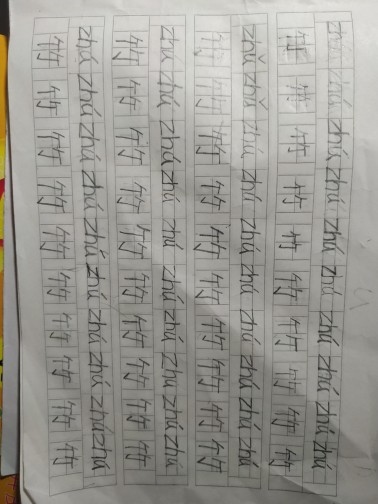 zhú zhú zhú zhú zhú zhú zhú zhú zhú zhú
竹 竹 竹 竹 竹 竹 竹 竹 竹 竹
zhǔ zhǔ zhú zhú zhú zhú zhú zhú zhú zhú
竹 竹 竹 竹 竹 竹 竹 竹 竹 竹
zhú zhú zhú zhú zhú zhú zhú zhú zhú zhú
竹 竹 竹 竹 竹 竹 竹 竹 竹 竹
zhú zhú zhú zhú zhú zhú zhú zhú zhú zhú
竹 竹 竹 竹 竹 竹 竹 竹 竹 竹